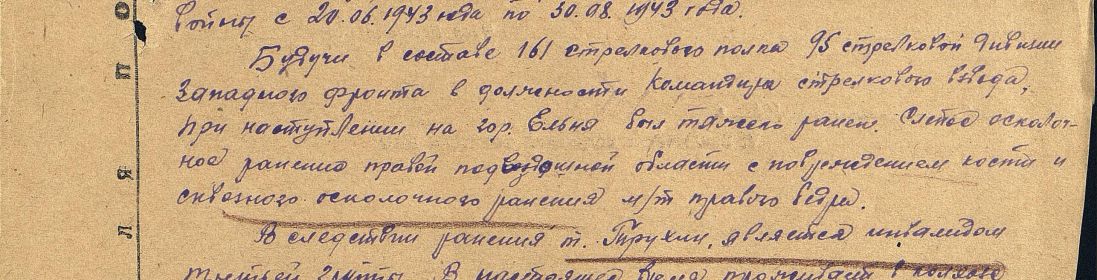 войны с 20.06.1943 года по 30.08.1943 года.
Будучи в составе 161 стрелкового полка 95 стрелковой дивизии
Западного фронта в должности Командира стрелкового взвода,
при наступлении на гор. Ельня был тяжело ранен. Слепое осколоч-
ное ранение правой подвздошной области с повреждением кости и
сквозного осколочного ранения м/т правого бедра.
В следствии ранения т. Трухин, является инвалидом
третьей группы. В настоящее время проживает в колхозе
Л
Я
П
О